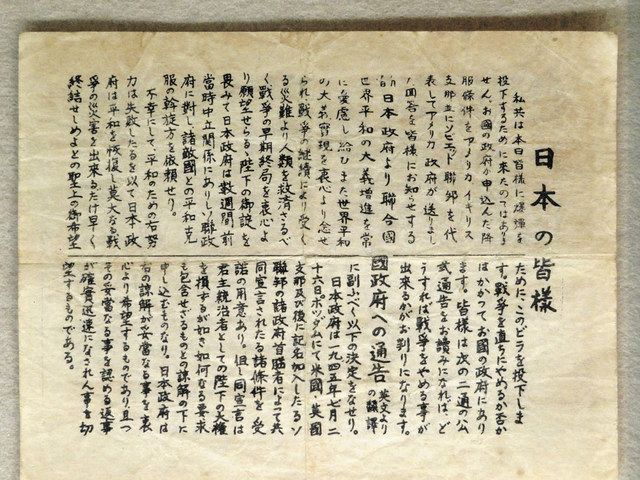 日本の皆様
私共は本日皆様に爆弾を
投下するために来たのではありま
せん。お國の政府が申込んだ降
服條件をアメリカ イギリス
支那並にソビエット聯邦を代
表してアメリカ政府が送りまし
た囘答を皆様にお知らせする
ためにこのビラを投下しま
す。戦争を直ちにやめるか否か
はかかってお國の政府にあり
ます。皆様は次の二通の公
式通告をお讀みになれば、ど
うすれば戦争をやめる事が
出来るかがお判りになります。
日本政府より聯合國
國政府への通告 英文より飜譯
世界平和の大義増進を常
に憂慮し給ひまた世界平和
の大義實現を衷心より念ぜ
られ戦争の継續により受く
る災難より人類を救済さるべ
く戦争の早期終局を衷心よ
り願望せらるゝ陛下の御諚を
畏みて日本政府は数週間前
當時中立関係にありしソ聯政
府に對し諸敵國との平和克
服の斡旋方を依頼せり。
不幸にして、平和のための右努
力は失敗したるを以て日本政
府は平和を恢復し莫大なる戦
争の災害を出来るたけ早く
終結せしめよとの聖上の御希望
に副ふべく以下の決定をなせり。
日本政府は一九四五年七月二
十六日ポツダムにて米國・英國
支那及び後に記名加入したるソ
聯邦の諸政府首脳者によって共
同宣言されたる諸條件を受
諾の用意あり。但し同宣言は
君主統治者としての陛下の大権
を損するが如き如何なる要求
も包含せざるものとの諒解の下に
申し込むものなり。日本政府は
右の諒解が妥當なる事を衷
心より希望するものであり且つ
その妥當なる事を認める返事
が確實迅速になされん事を切
望するものである。